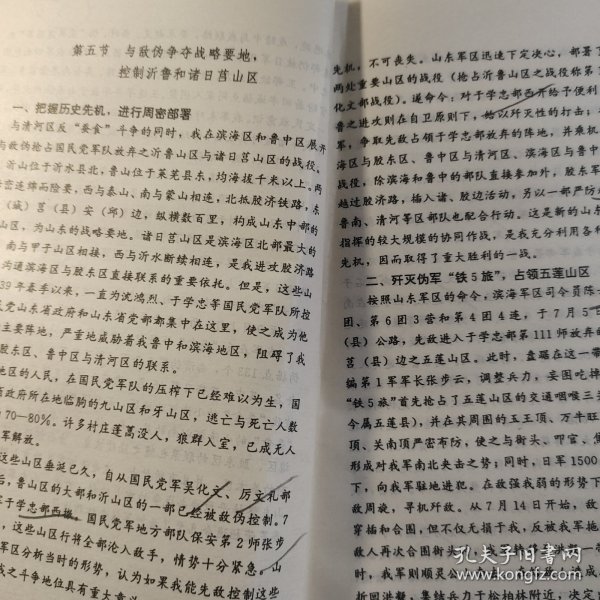 第五节 与敌伪争夺战略要地，
控制沂鲁和诸日莒山区
一、把握历史先机，进行周密部署
与清河区反“蚕食”斗争的同时，我在滨海区和鲁中区展开
与敌伪抢占国民党军队放弃之沂鲁山区与诸日莒山区的战役。
沂山位于沂水县北，鲁山位于莱芜县东，均海拔千米以上。两
连绵而险要，西与泰山、南与蒙山相连，北抵胶济铁路，东
（城）莒（县）安（邱）边，纵横数百里，构成山东中部的
山区，为山东的战略要地。诸日莒山区是滨海区北部最大的
南与甲子山区相接，西与沂水断续相连，是我进攻胶济路
沟通滨海区与胶东区直接联系的重要依托。但是，这些山
39年春季以来，一直为沈鸿烈、于学忠等国民党军队所控
民党山东省政府和山东省党部都集中在这里，使之成为他
主要阵地，严重地威胁着我鲁中和滨海地区，阻碍了我
胶东区、鲁中区与清河区的联系。
地区的人民，在国民党军队的压榨下已经难以为生，国
省政府所在地临朐的九山区和牙山区，逃亡与死亡人数
70—80%。许多村庄蓬蒿没人，狼群入室，已成无人
军解放。
这些山区垂涎已久，自从国民党军吴化文、厉文礼部
后，鲁山区的大部和沂山区的一部已经被敌伪控制。7
于学忠部西撤，国民党军地方部队保安第2师张步
，这些山区行将全部沦入敌手，情势十分紧急。山
军区分析当时的形势，认为如果我能先敌控制这些
我之斗争地位具有重大意义
先机，不可丧失。山东军区迅速下定决心，部署了
两处重要山区的战役（抢占沂鲁山区之战役称第
化文部战役）。遂命令：对于学忠部西开给予便利
鲁之进攻则在自卫原则下，给以歼灭性的打击；
军，争取先敌占领于学忠部放弃的阵地，并乘机
海区与胶东区、鲁中区与清河区、滨海区与鲁中
战役，除滨海和鲁中的部队直接参加外，胶东军
越过胶济路，插入诸、胶边活动，另以一部严防
鲁南、清河等区部队也配合行动。这是新的山东
指挥的较大规模的协同作战，是我充分利用各
先机，因而取得了重大胜利的一战。
二、歼灭伪军“铁5旅”，占领五莲山区
按照山东军区的命令，滨海军区司令员陈
团、第6团3营和第4团4连，于7月5日
（县）公路，先敌进入于学忠部第111师放弃的
莒（县）边之五莲山区。此时，盘踞在这一带
编第1军军长张步云，调整兵力，妄图吃掉
“铁5旅”首先抢占了五莲山区的交通咽喉三关
今属五莲县），并在其周围的五王顶、万牛
顶、关南顶严密布防，使之与街头、叩官、
形成对我军南北夹击之势；同时，日军1500
下，向我军驻地进犯。在敌强我弱的形势下
敌周旋，寻机歼敌。从7月14日开始，敌
穿插和合围，但不仅无损于我，反被我军拖
敌人再次合围街头
势，我军则顺灵公
折回洪凝，集结兵力于松柏林附近，决定
孔夫子旧书网
www.kongfz.com